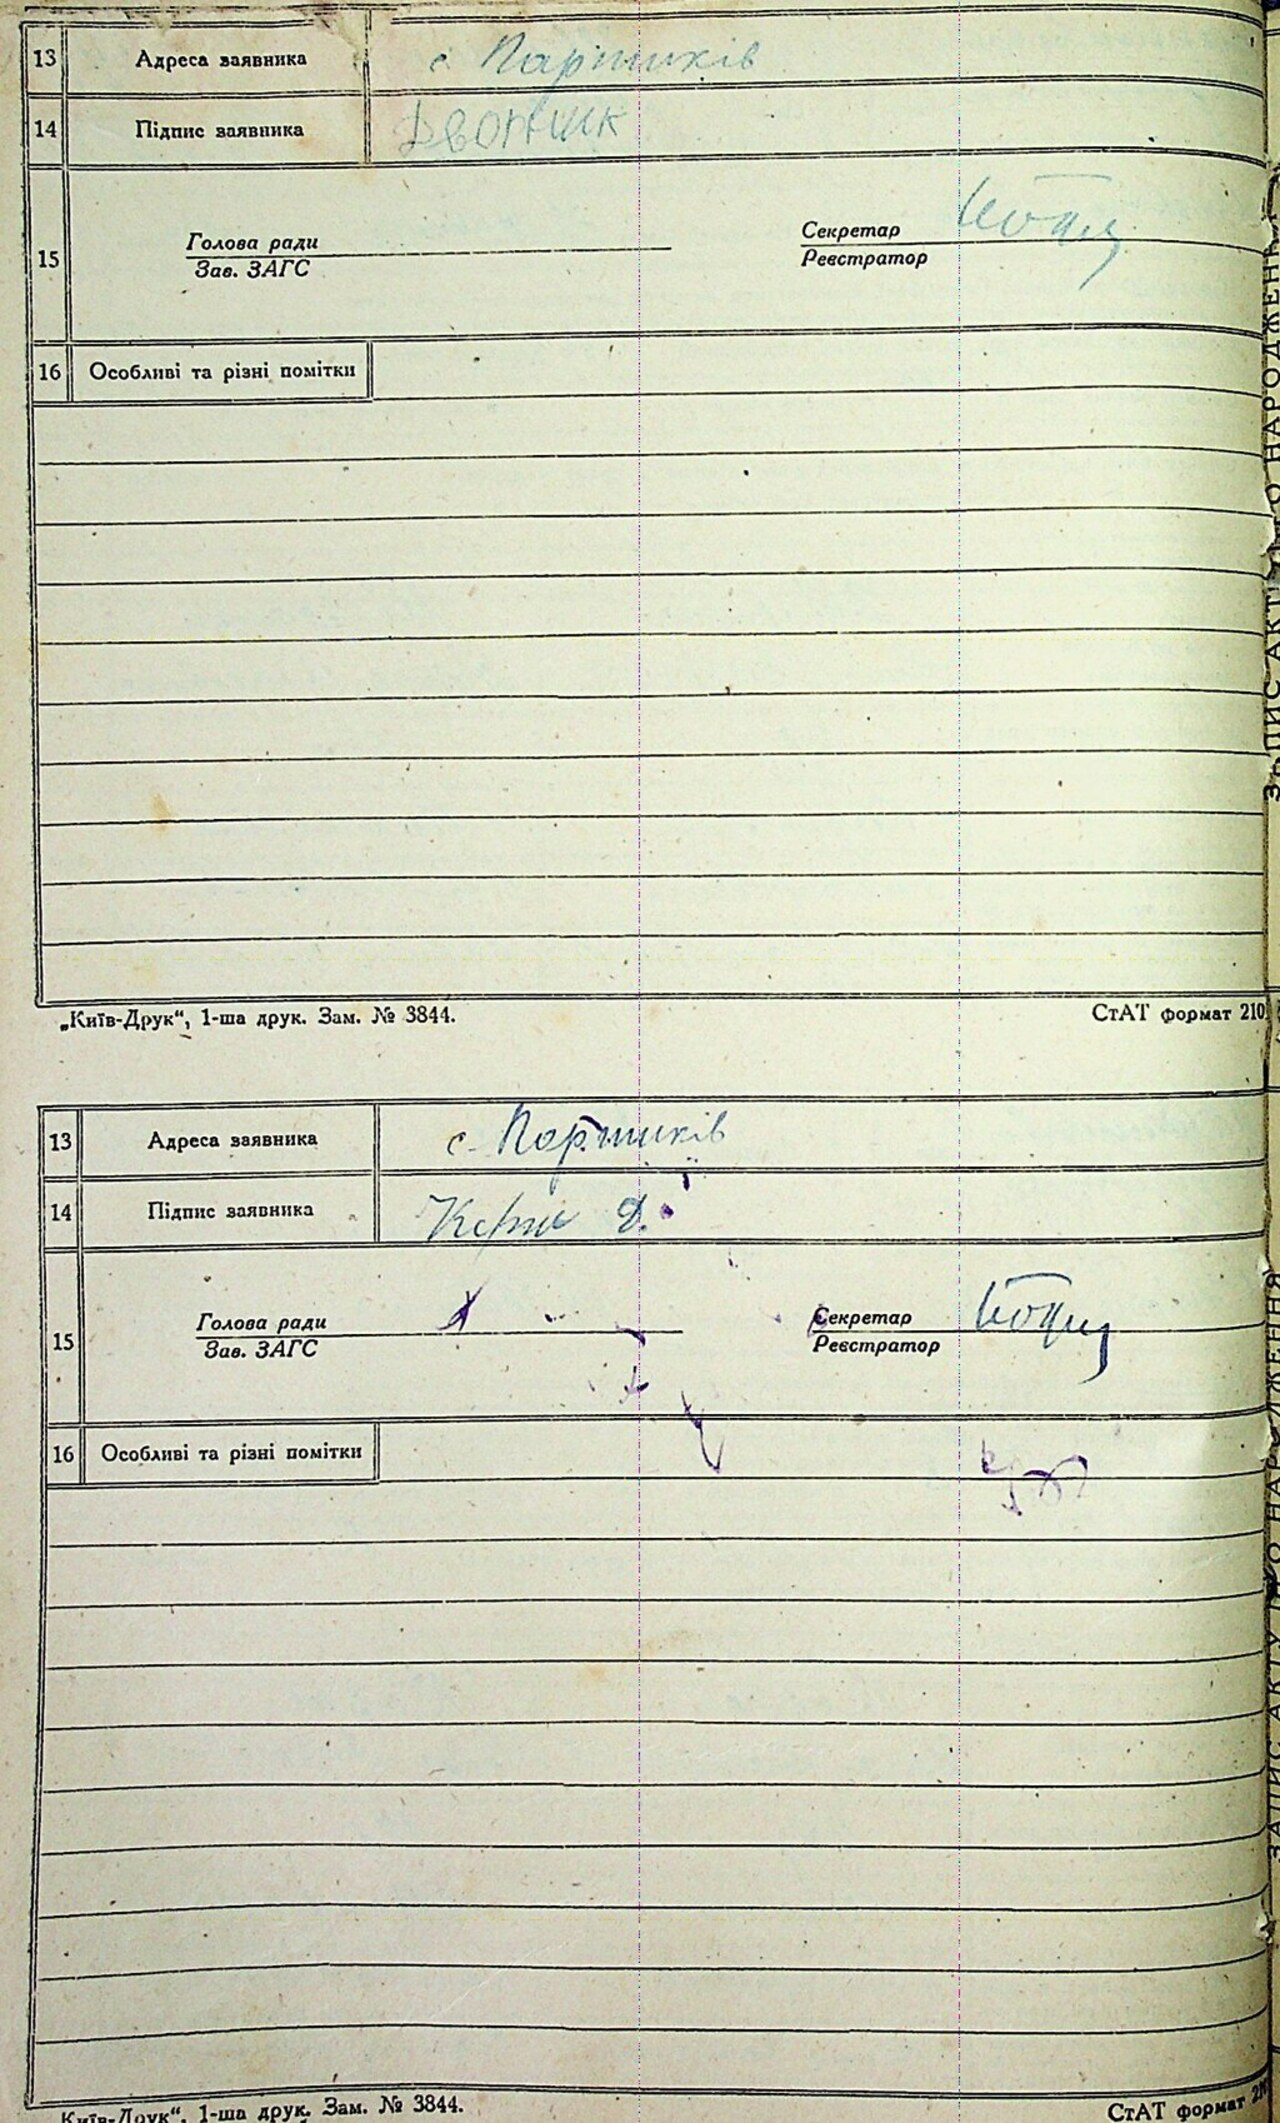 13 Адреса заявника с Паршиків
14 Підпис заявника Дворник
15 Голова ради Секретар
Зав. ЗАГС Реєстратор
16 Особливі та різні помітки
„Київ-Друк“, 1-ша друк. Зам. № 3844. СтАТ формат 210
13 Адреса заявника с. Паршиків
14 Підпис заявника
15 Голова ради Секретар
Зав. ЗАГС Реєстратор
16 Особливі та різні помітки
Київ-Друк“, 1-ша друк. Зам. № 3844. СтАТ формат 210
ЗАПИС АКТУ ПРО НАРОДЖЕННЯ
ЗАПИС АКТУ ПРО НАРОДЖЕННЯ